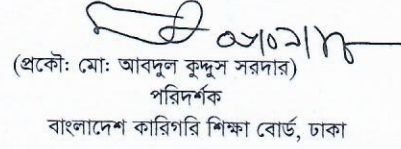 (প্রকৌঃ মোঃ আবদুল কুদ্দুস সরদার)
পরিদর্শক
বাংলাদেশ কারিগরি শিক্ষা বোর্ড, ঢাকা